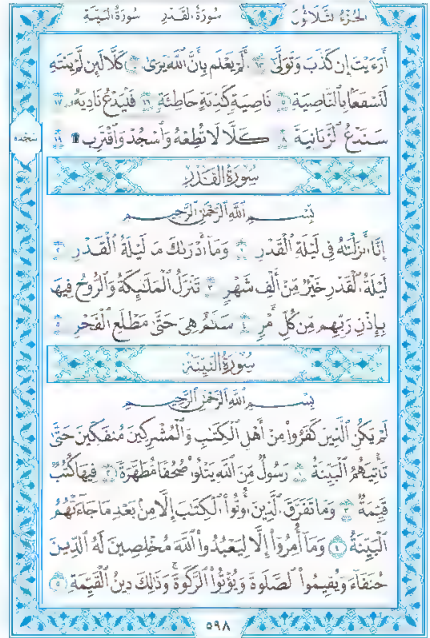 الجزء الثلاثون سورة القدر سورة البينة
أَرَءَيْتَ إِن كَذَّبَ وَتَوَلَّىٰ ١٣ أَلَمْ يَعْلَم بِأَنَّ ٱللَّهَ يَرَىٰ ١٤ كَلَّا لَئِن لَّمْ يَنتَهِ
لَنَسْفَعًۢا بِٱلنَّاصِيَةِ ١٥ نَاصِيَةٍ كَٰذِبَةٍ خَاطِئَةٍ ١٦ فَلْيَدْعُ نَادِيَهُۥ ١٧
سَنَدْعُ ٱلزَّبَانِيَةَ ١٨ كَلَّا لَا تُطِعْهُ وَٱسْجُدْ وَٱقْتَرِب ۩ ١٩
سجدة
سورة القدر
بِسْمِ ٱللَّهِ ٱلرَّحْمَٰنِ ٱلرَّحِيمِ
إِنَّآ أَنزَلْنَٰهُ فِى لَيْلَةِ ٱلْقَدْرِ ١ وَمَآ أَدْرَىٰكَ مَا لَيْلَةُ ٱلْقَدْرِ ٢
لَيْلَةُ ٱلْقَدْرِ خَيْرٌ مِّنْ أَلْفِ شَهْرٍ ٣ تَنَزَّلُ ٱلْمَلَٰٓئِكَةُ وَٱلرُّوحُ فِيهَا
بِإِذْنِ رَبِّهِم مِّن كُلِّ أَمْرٍ ٤ سَلَٰمٌ هِىَ حَتَّىٰ مَطْلَعِ ٱلْفَجْرِ ٥
سورة البينة
بِسْمِ ٱللَّهِ ٱلرَّحْمَٰنِ ٱلرَّحِيمِ
لَمْ يَكُنِ ٱلَّذِينَ كَفَرُوا۟ مِنْ أَهْلِ ٱلْكِتَٰبِ وَٱلْمُشْرِكِينَ مُنفَكِّينَ حَتَّىٰ
تَأْتِيَهُمُ ٱلْبَيِّنَةُ ١ رَسُولٌ مِّنَ ٱللَّهِ يَتْلُوا۟ صُحُفًا مُّطَهَّرَةً ٢ فِيهَا كُتُبٌ
قَيِّمَةٌ ٣ وَمَا تَفَرَّقَ ٱلَّذِينَ أُوتُوا۟ ٱلْكِتَٰبَ إِلَّا مِنۢ بَعْدِ مَا جَآءَتْهُمُ
ٱلْبَيِّنَةُ ٤ وَمَآ أُمِرُوٓا۟ إِلَّا لِيَعْبُدُوا۟ ٱللَّهَ مُخْلِصِينَ لَهُ ٱلدِّينَ
حُنَفَآءَ وَيُقِيمُوا۟ ٱلصَّلَوٰةَ وَيُؤْتُوا۟ ٱلزَّكَوٰةَ ۚ وَذَٰلِكَ دِينُ ٱلْقَيِّمَةِ ٥
٥٩٨